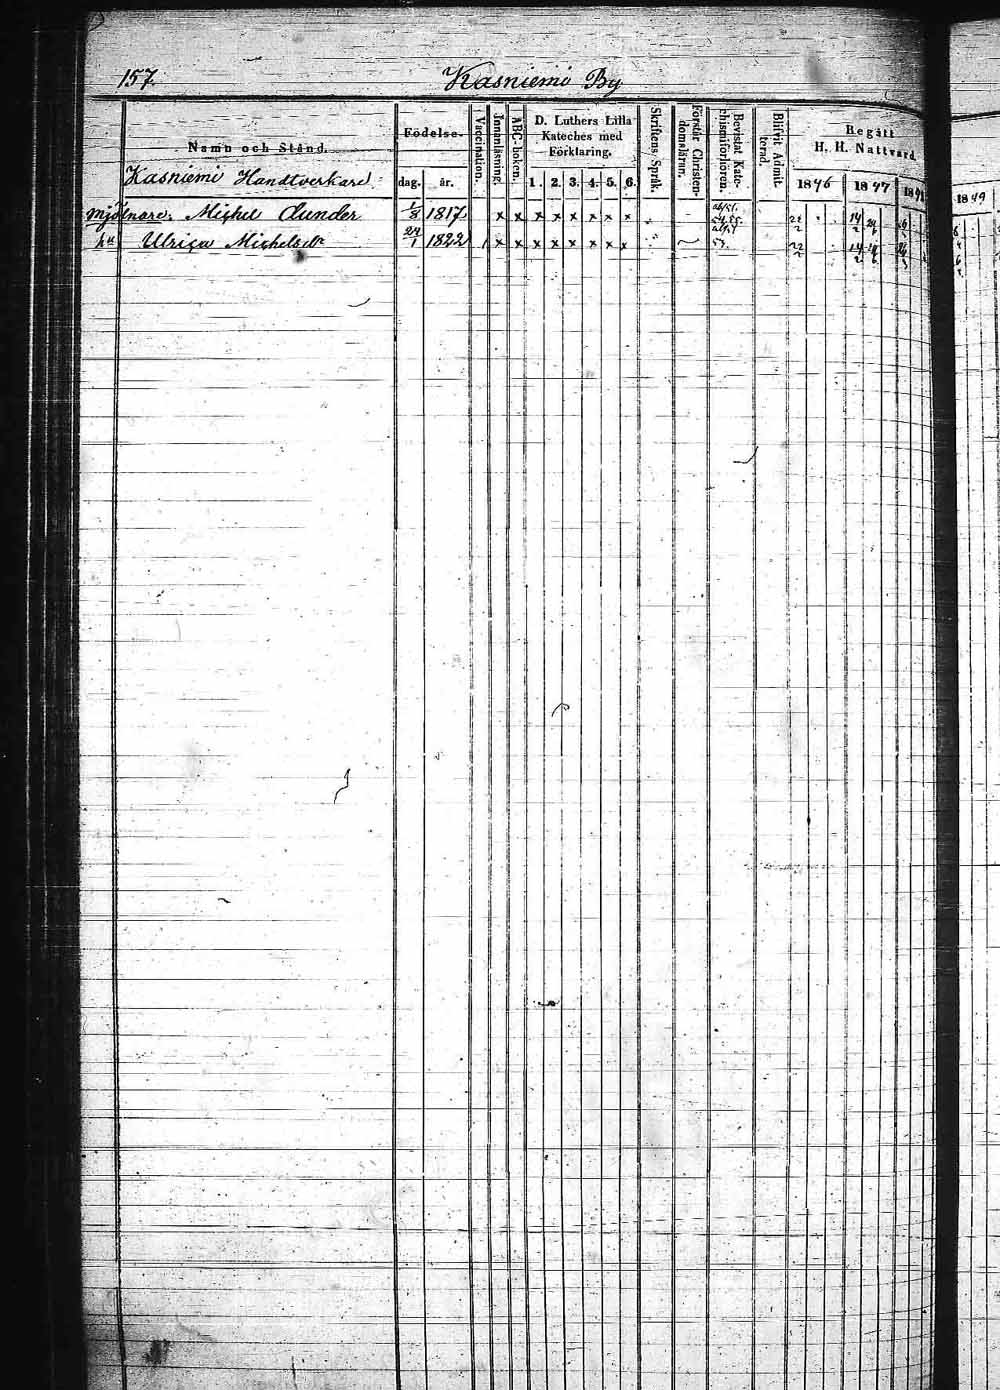 157.
Kasniemi By
Namn och Stånd.
Födelse-
dag. år.
Vaccination.
Innanläsning.
ABC-boken.
D. Luthers Lilla
Kateches med
Förklaring.
1. 2. 3. 4. 5. 6.
Skriftens Språk.
Förstår Christen-
domsläran.
Bevistat Kate-
chismiförhören.
Blifvit Admit-
terad.
Begått
H. H. Nattvard
1846 1847 184
1849
Kasniemi Handtverkare
Mjölnare. Michel Dunder 1/8 1817 x x x x x x x x
hu Ulrica Michelsdr 24/1 1822 x x x x x x x x